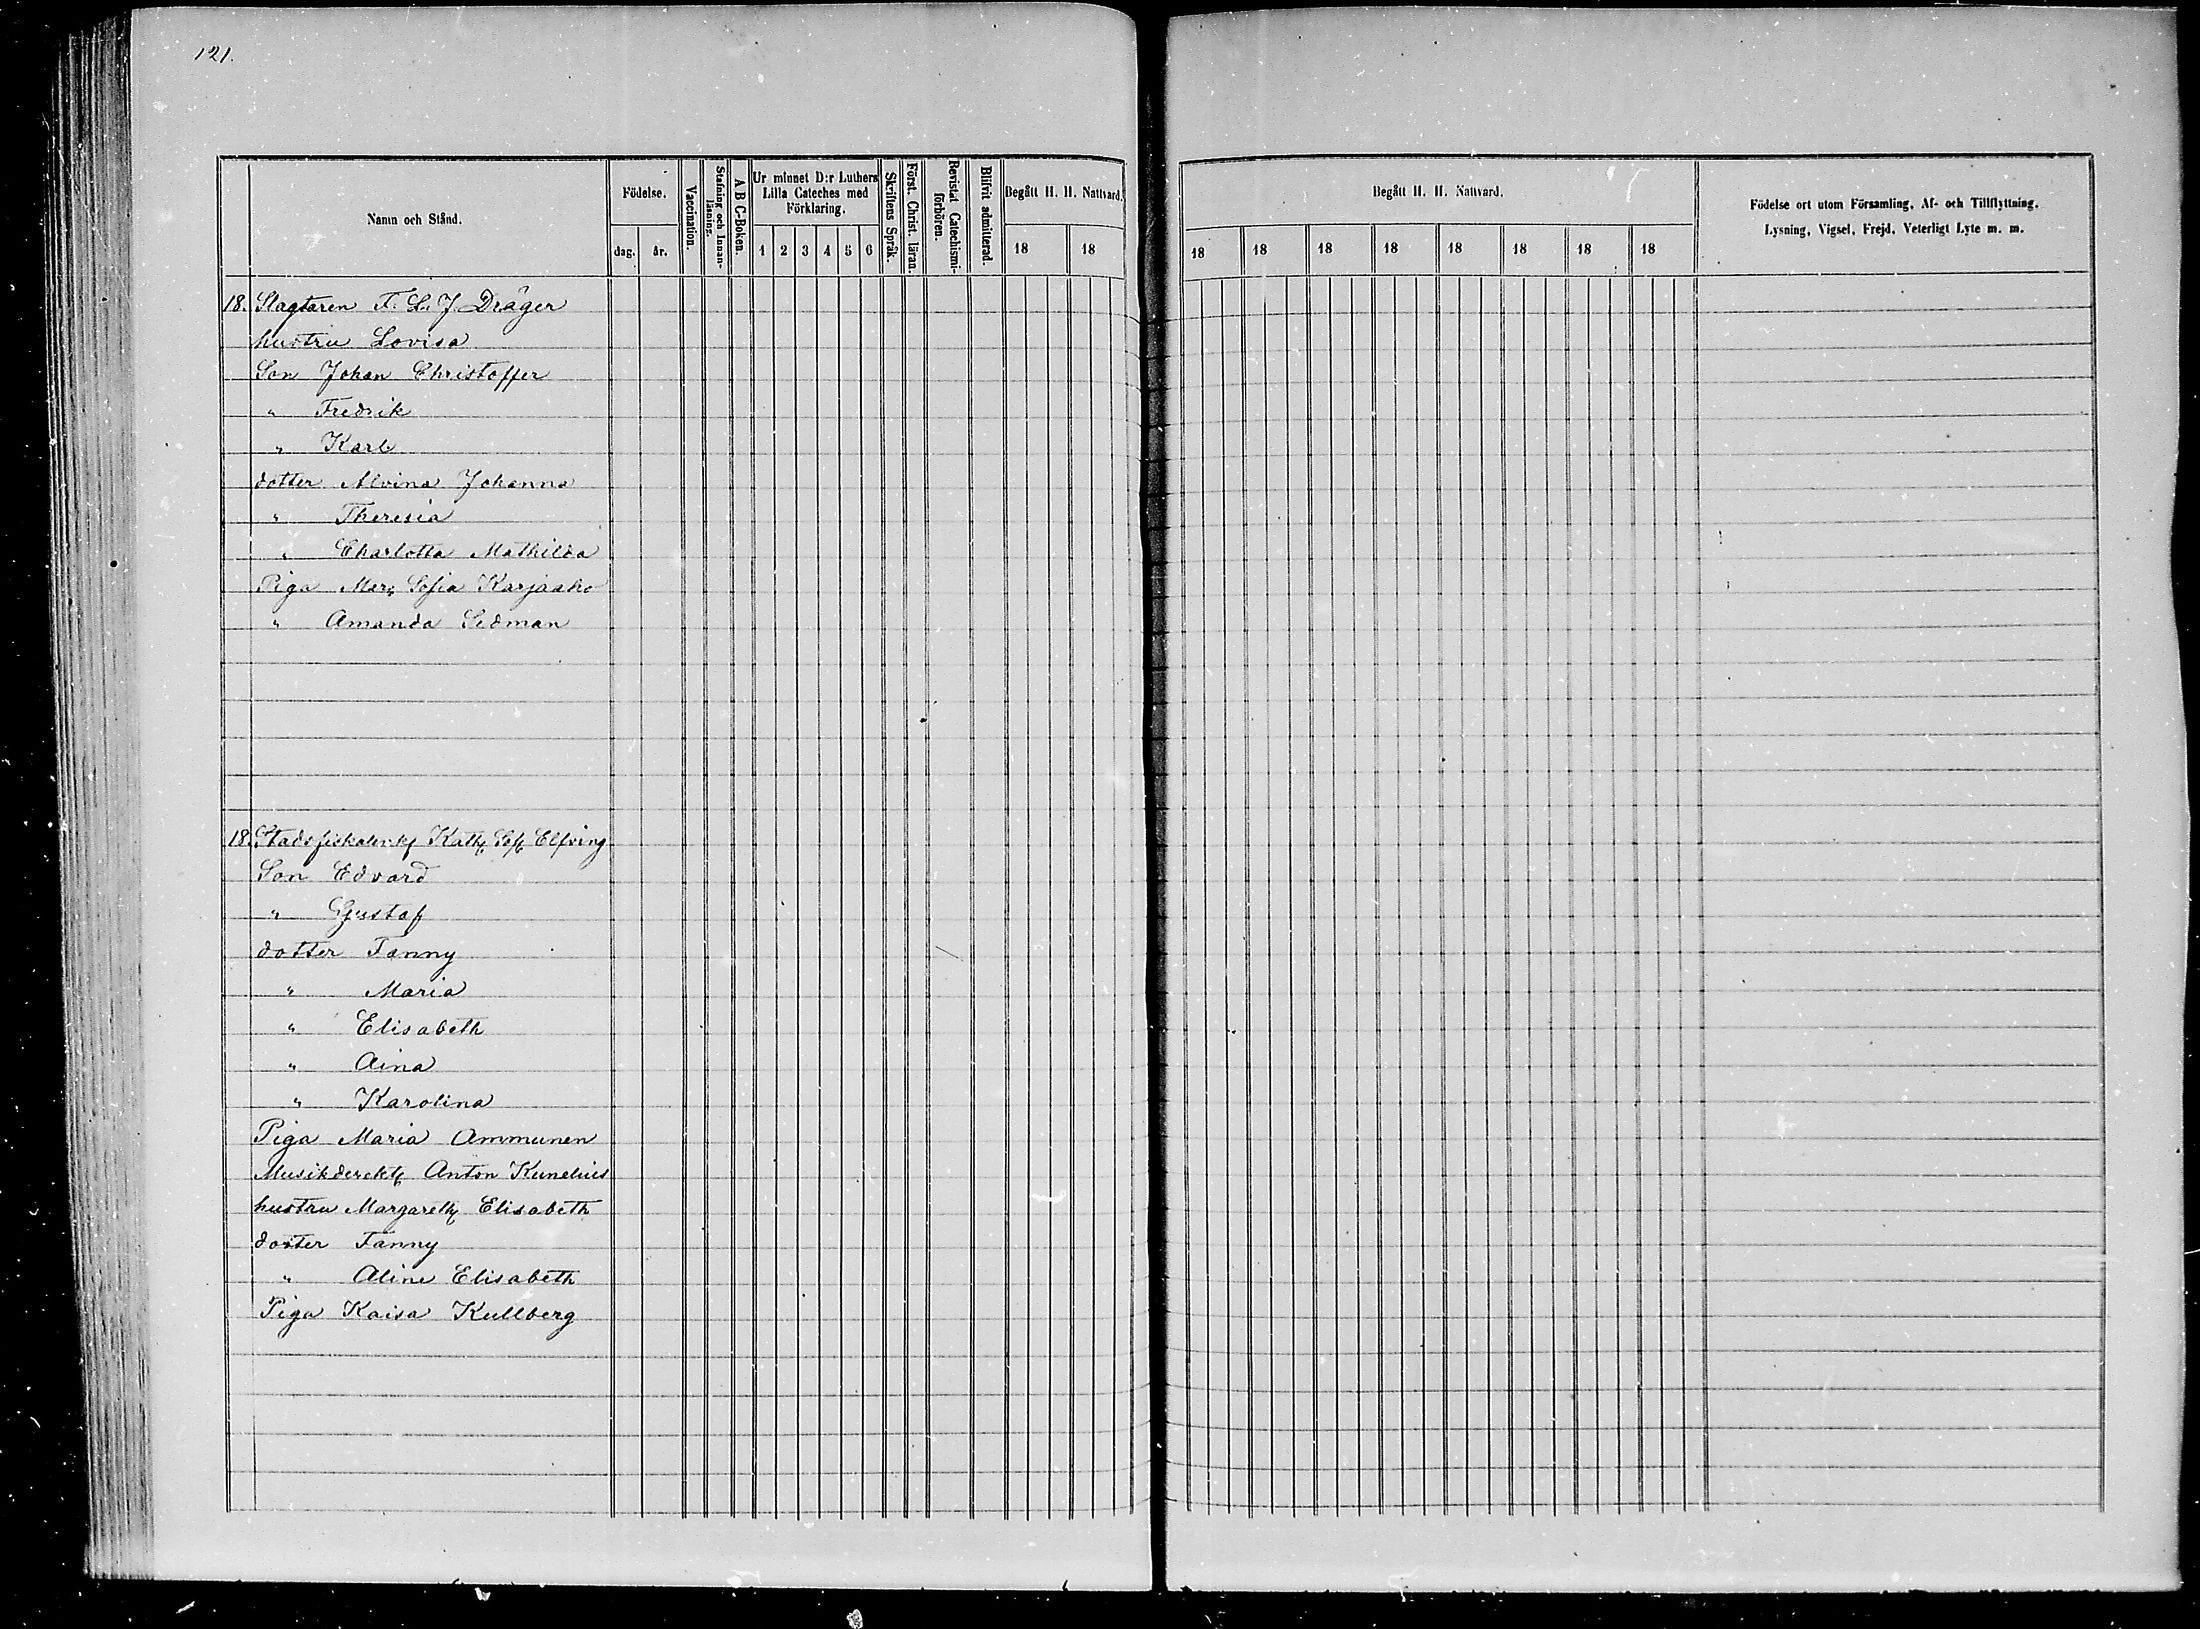 121.
Namn och Stånd.
Födelse.
dag. år.
Vaccination.
Stafning och Innan-
läsning.
A B C-Boken.
Ur minnet D:r Luthers
Lilla Cateches med
Förklaring.
1 2 3 4 5 6
Skriftens Språk.
Först. Christ. läran.
Bevistat Catechismi-
förhören.
Blifvit admitterad.
Begått H. H. Nattvard.
18 18
Begått H. H. Nattvard.
18 18 18 18 18 18 18 18
Födelse ort utom Församling, Af- och Tillflyttning,
Lysning, Vigsel, Frejd, Veterligt Lyte m. m.
18. Slagtaren F. L. J. Dräger
hustru Lovisa
Son Johan Christoffer
" Fredrik
" Karl
dotter Alvina Johanna
" Theresia
" Charlotta Mathilda
Piga Mar: Sofia Karjaaho
" Amanda Sedman
18. Kath: Sof: Elfving
Son Edvard
" Gustaf
dotter Fanny
" Maria
" Elisabeth
" Aina
" Karolina
Piga Maria Ammunen
Musikderekt: Anton Kunelius
hustru Margareth: Elisabeth
dotter Fanny
" Aline Elisabeth
Piga Kaisa Kullberg